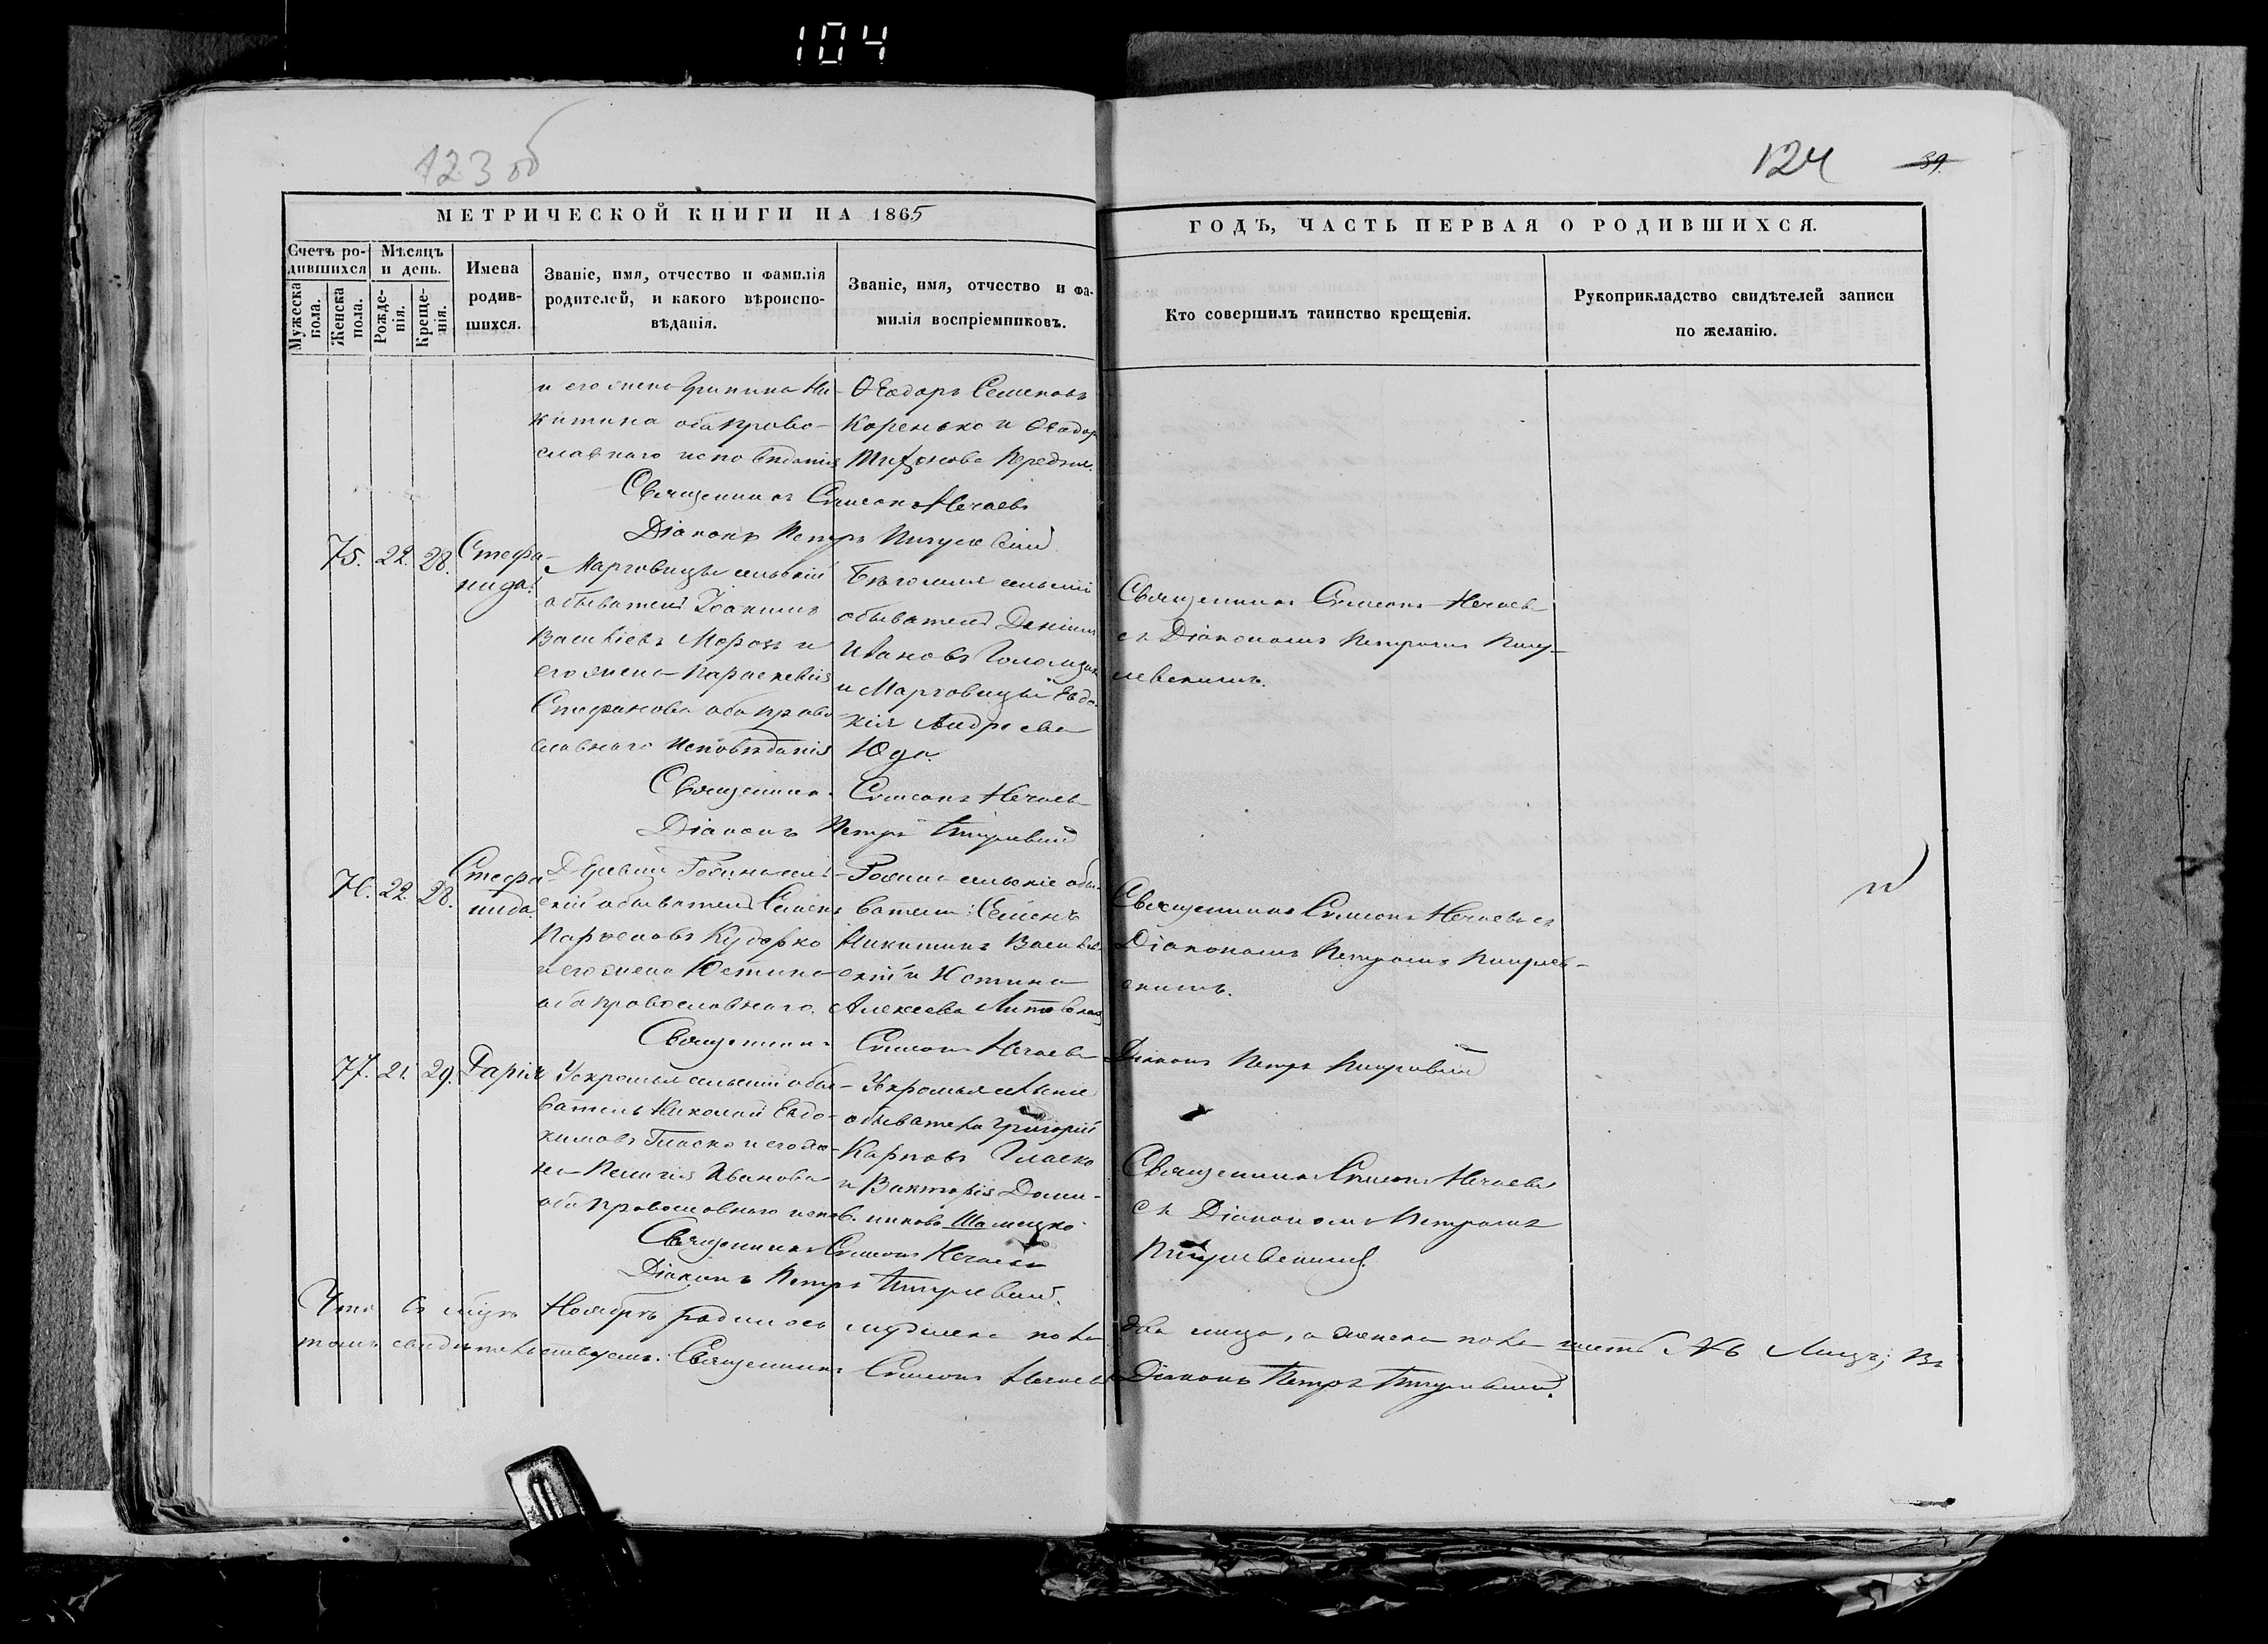 104
123 об
124
39.
МЕТРИЧЕСКОЙ КНИГИ НА 1865
ГОДЪ, ЧАСТЬ ПЕРВАЯ О РОДИВШИХСЯ.
Счетъ ро-
дившихся
Мужеска
пола.
Женска
пола.
Мѣсяцъ
и день.
Рожде-
нія.
Креще-
нія.
Имена
родив-
шихся.
Званіе, имя, отчество и фамилія
родителей, и какого вѣроиспо-
вѣданія.
Званіе, имя, отчество и фа-
милія воспріемниковъ.
Кто совершилъ таинство крещенія.
Рукоприкладство свидѣтелей записи
по желанію.
и его жена Грипина Ни-
китина оба право-
славнаго исповѣданія
Ѳеодоръ Семеновъ
Коренько и Ѳеодор
Священникъ Симеонъ Нечаевъ
Діаконъ Петръ
75. 22. 28.
Стефа-
нида.
Марговицы сельскій
обыватель Іоакимъ
Васильевъ Морозъ и
его жена Параскевія
Стефанова оба право
славнаго исповѣданія
Бѣгомля сельскій
обыватель Даніилъ
Ивановъ
и Марговицы Евдо-
кія Андреева
Юда.
Священникъ Симеонъ Нечаевъ
съ Діакономъ Петромъ
Священникъ Симеонъ Нечаевъ
Діаконъ Петръ
76. 22. 28.
Стефа
нида.
Деревни
скій обыватель Семенъ
Парѳеновъ Кудорко
и его жена Юстина
оба православнаго.
сельскіе обы-
ватели: Семенъ
Никитинъ
скій и Юстина
Алексеева
Священникъ Симеонъ Нечаевъ съ
Діакономъ Петромъ
скимъ.
Священникъ Симеонъ Нечаевъ Діаконъ Петръ
77. 21. 29. Дарія
Ускромья сельскій обы-
ватель Николай Евдо-
кимовъ Гласко и его же-
на Пелагія Иванова
оба православнаго испов.
Ускромья сельскіе
обыватели Григорій
Карповъ Гласко
и Викторія Доми-
никова
Священникъ Симеонъ Нечаевъ
съ Діакономъ Петромъ
Священникъ Симеонъ Нечаевъ
Діаконъ Петръ
Что въ мѣсяцѣ Ноябрѣ родилось мужеска пола два лица, а женска пола шесть № 6 Лицъ; въ
томъ свидѣтельствуемъ. Священникъ Симеонъ Нечаевъ Діаконъ Петръ